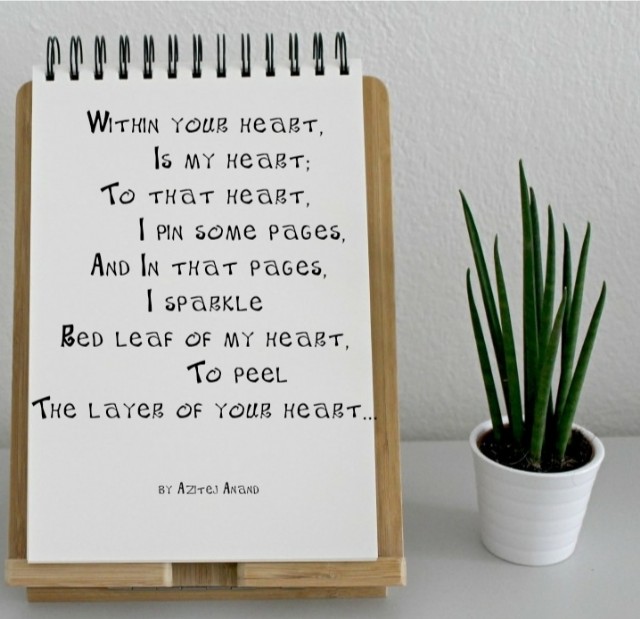 Within your heart,
Is my heart;
To that heart,
I pin some pages,
And In that pages,
I sparkle
Red leaf of my heart,
To peel
The layer of your heart...
by Azitej Anand